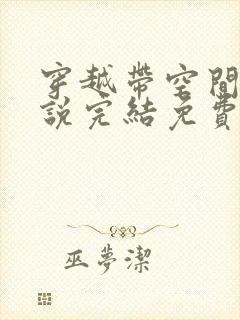 穿越帶空間
說完結免費
巫夢潔